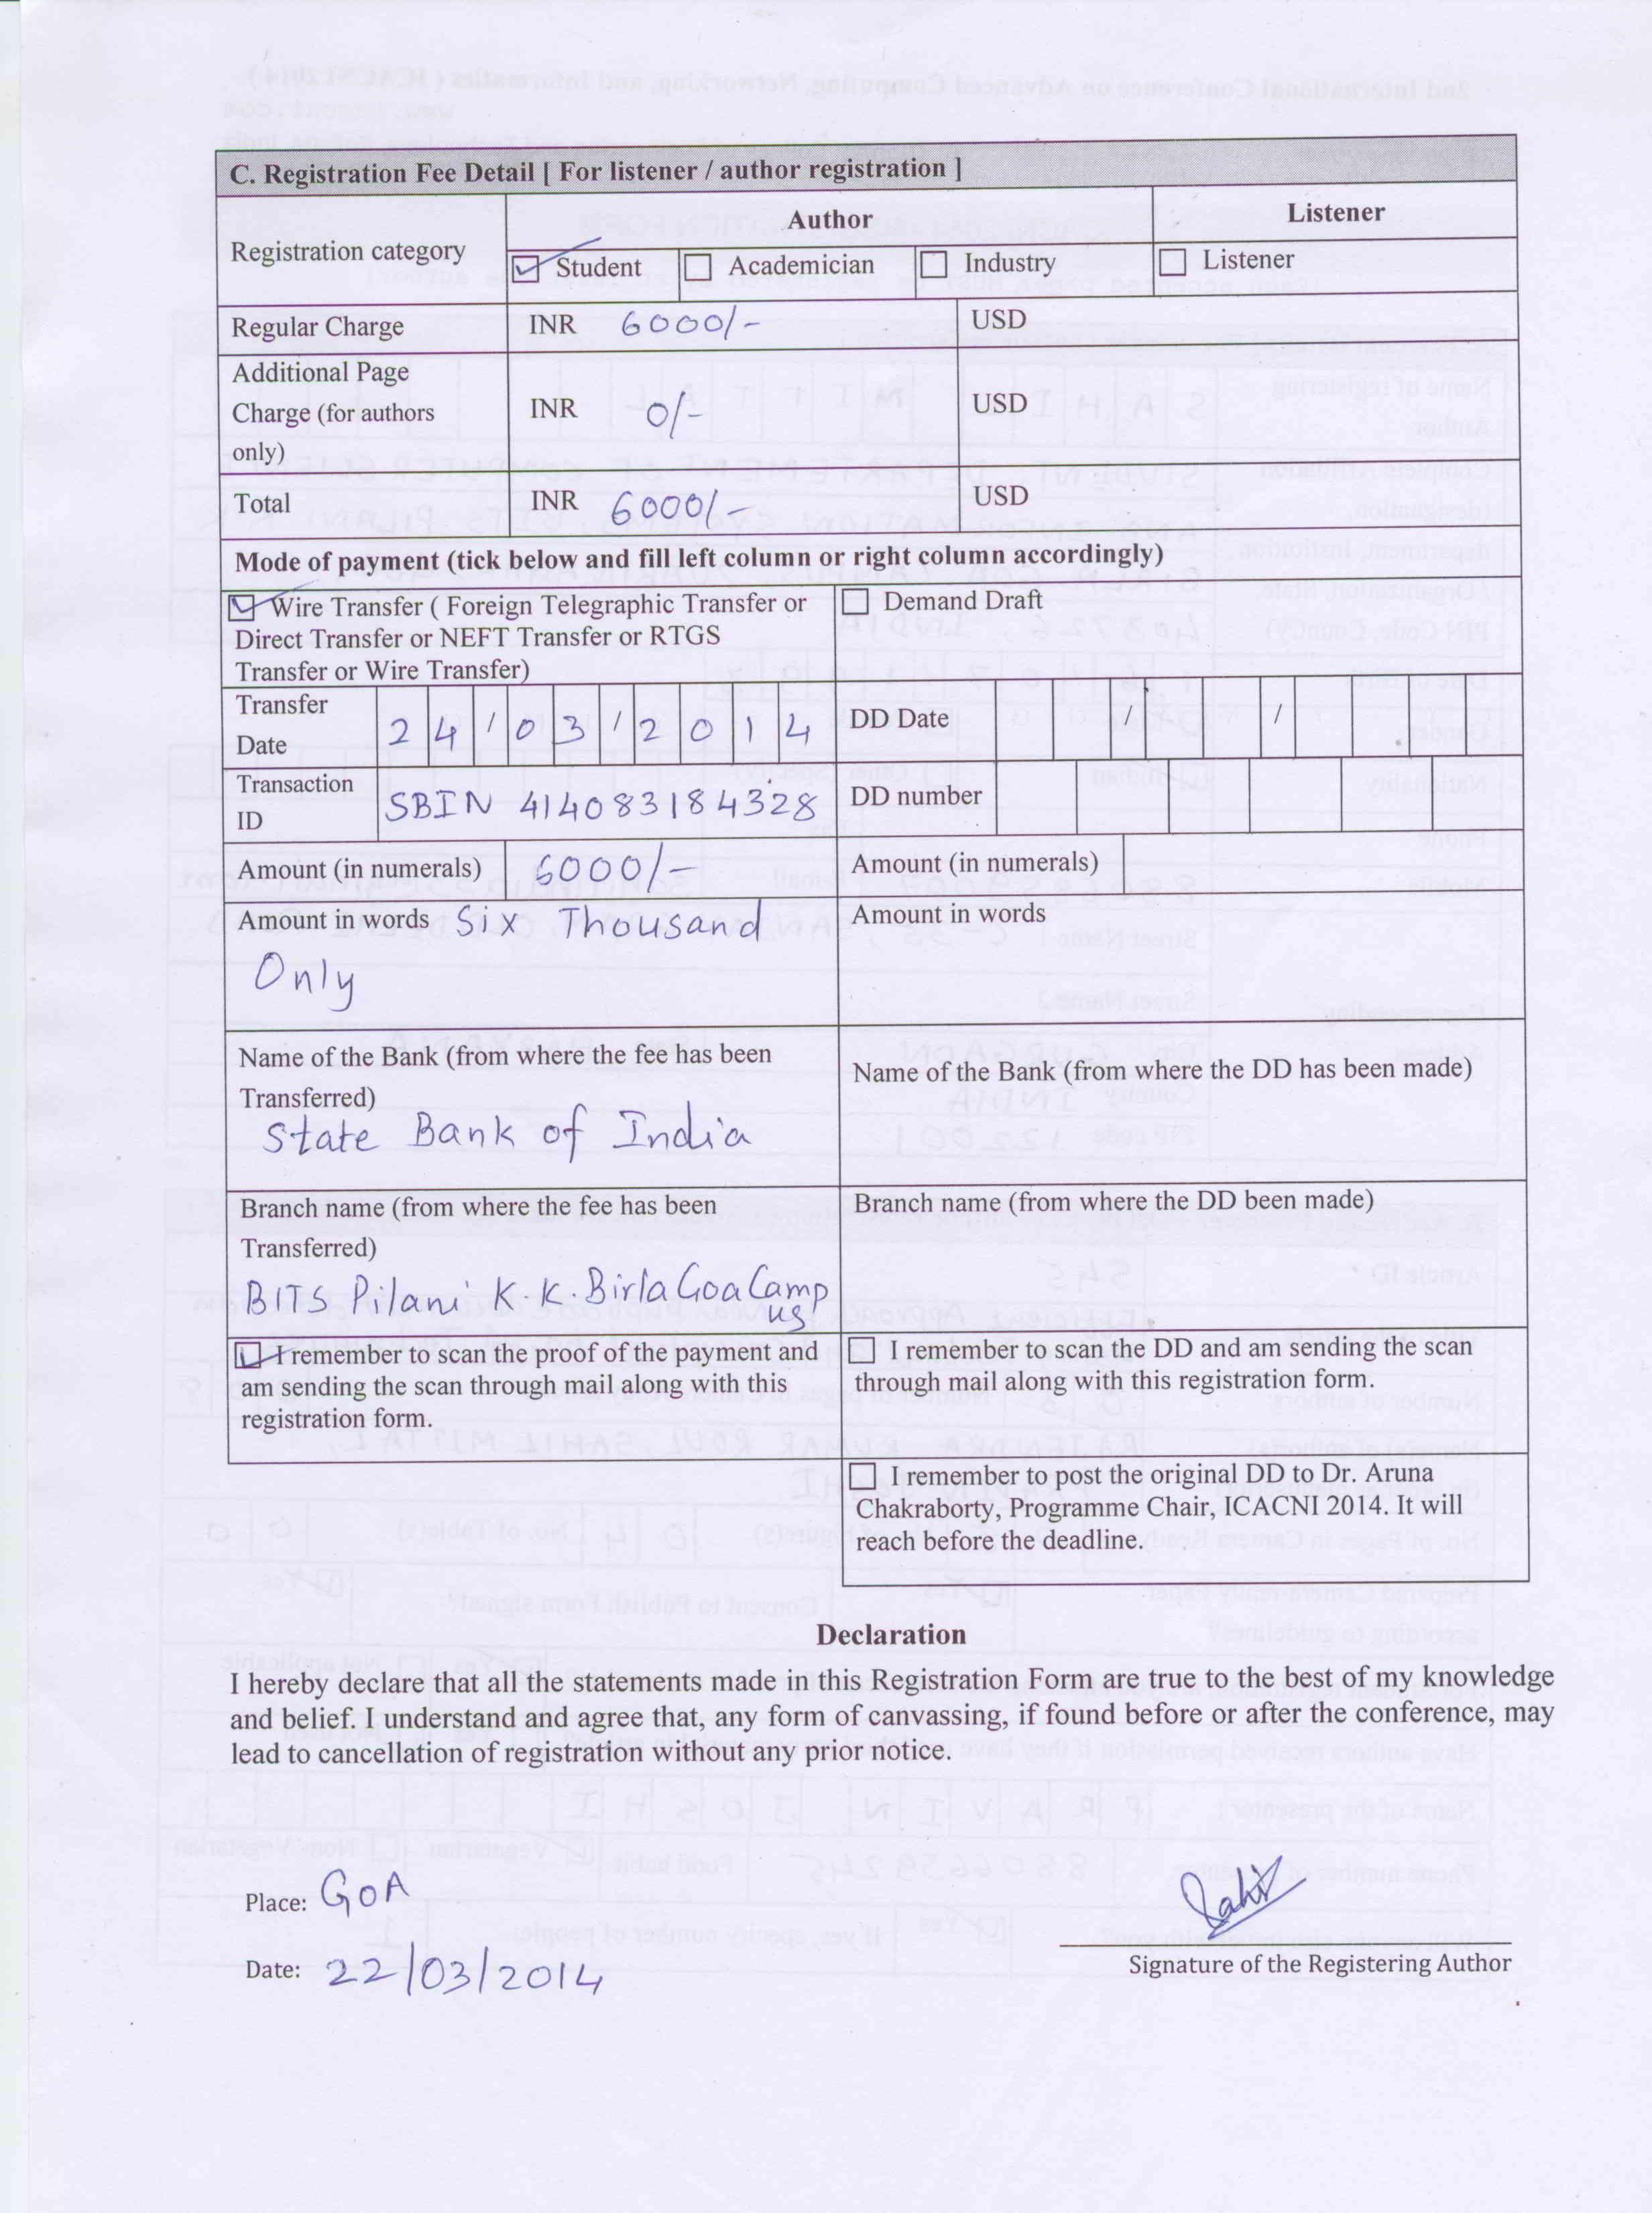 C. Registration Fee Detail [ For listener / author registration ]
Registration category
Author
Listener
Student
Academician
Industry
Listener
Regular Charge
INR 6000/-
USD
Additional Page
Charge (for authors
only)
INR 0/-
USD
Total
INR 6000/-
USD
Mode of payment (tick below and fill left column or right column accordingly)
Wire Transfer ( Foreign Telegraphic Transfer or
Direct Transfer or NEFT Transfer or RTGS
Transfer or Wire Transfer)
Demand Draft
Transfer
Date
24/03/2014
DD Date / /
Transaction
ID
SBIN 414083184328
DD number
Amount (in numerals) 6000/-
Amount (in numerals)
Amount in words Six Thousand
Only
Amount in words
Name of the Bank (from where the fee has been
Transferred)
State Bank of India
Name of the Bank (from where the DD has been made)
Branch name (from where the fee has been
Transferred)
BITS Pilani K.K. Birla Goa Camp
us
Branch name (from where the DD been made)
I remember to scan the proof of the payment and
am sending the scan through mail along with this
registration form.
I remember to scan the DD and am sending the scan
through mail along with this registration form.
I remember to post the original DD to Dr. Aruna
Chakraborty, Programme Chair, ICACNI 2014. It will
reach before the deadline.
Declaration
I hereby declare that all the statements made in this Registration Form are true to the best of my knowledge
and belief. I understand and agree that, any form of canvassing, if found before or after the conference, may
lead to cancellation of registration without any prior notice.
Place: GOA
Sahil
Date: 22/03/2014
Signature of the Registering Author